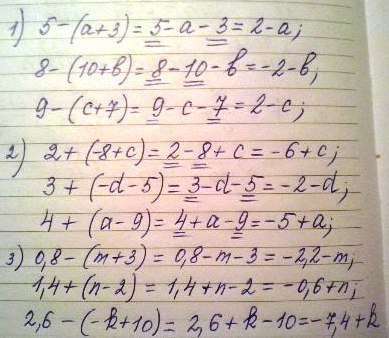 1) 5-(a+3)=5-a-3=2-a;
8-(10+b)=8-10-b=-2-b;
9-(c+7)=9-c-7=2-c;
2) 2+(-8+c)=2-8+c=-6+c;
3+(-d-5)=3-d-5=-2-d;
4+(a-9)=4+a-9=-5+a;
3) 0,8-(m+3)=0,8-m-3=-2,2-m;
1,4+(n-2)=1,4+n-2=-0,6+n;
2,6-(-k+10)=2,6+k-10=-7,4+k